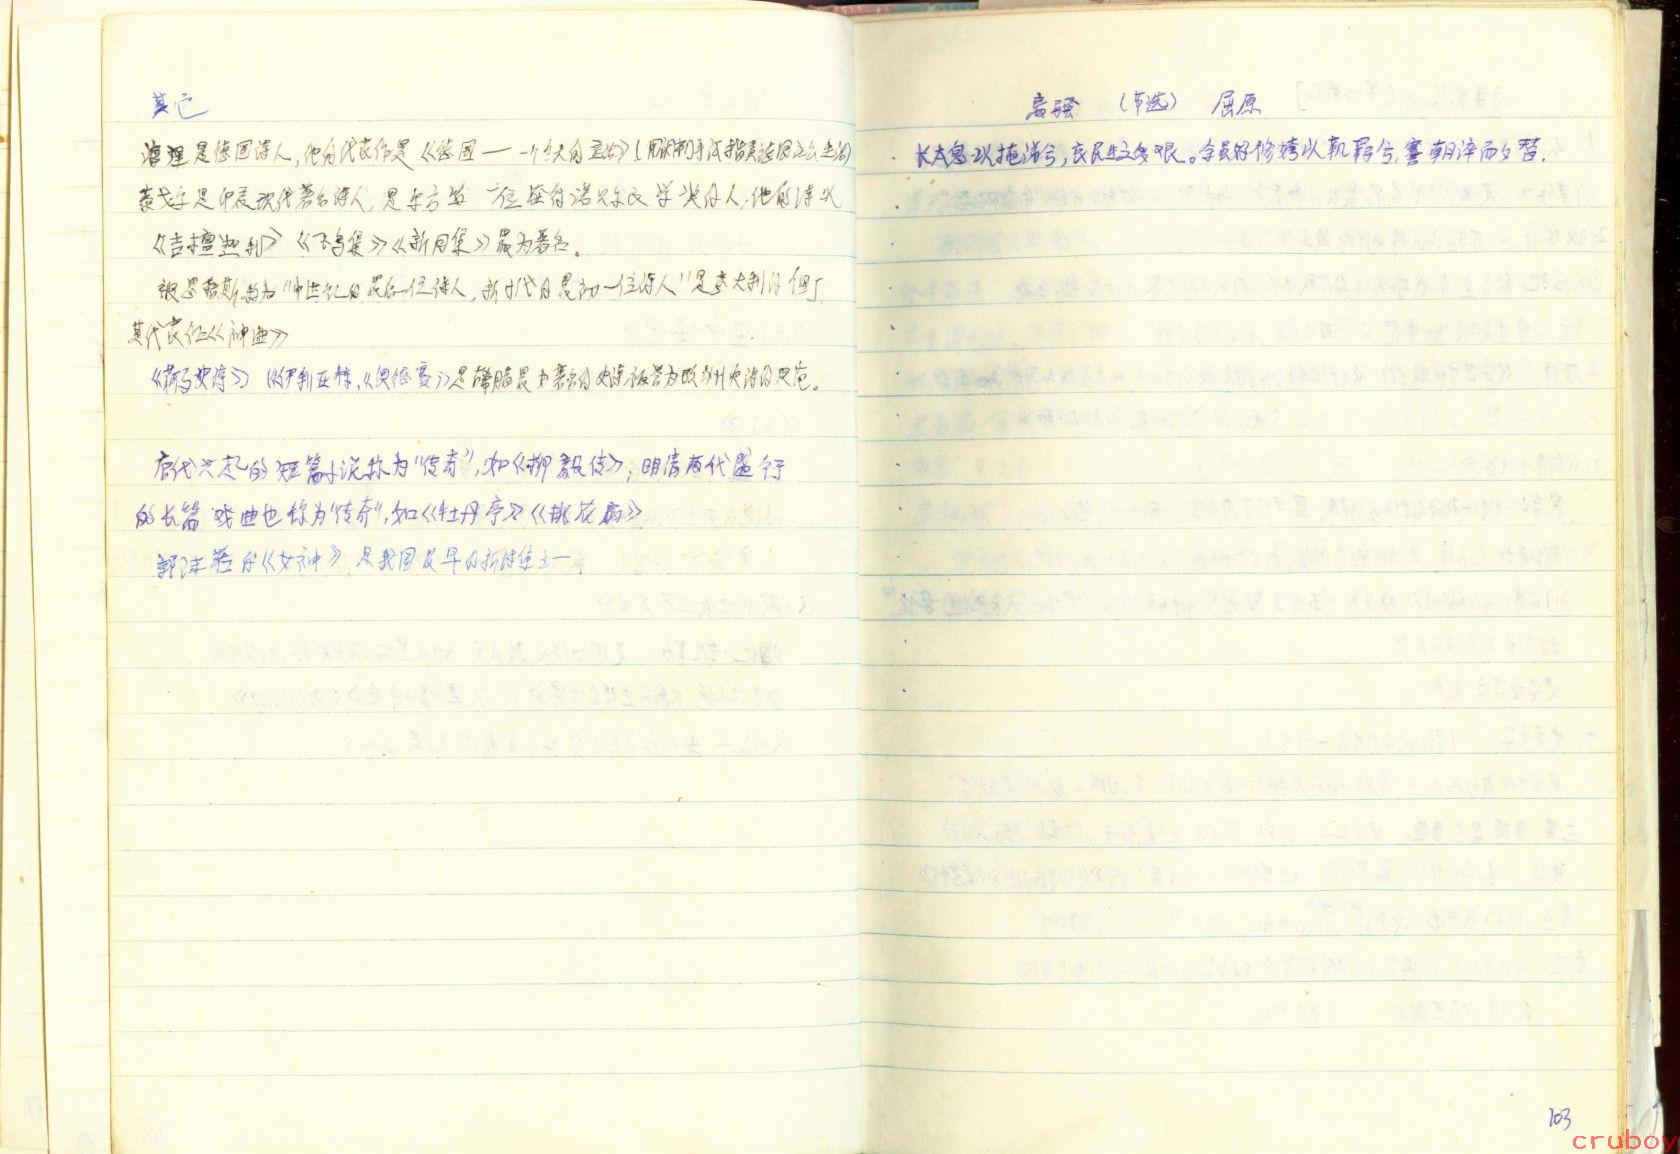 其它
海涅是德国诗人,他的代表作是《德国——一个冬天的童话》(用
泰戈尔是印度现代著名诗人,是东方第一位获得诺贝尔文学奖的人.他的诗以
《吉檀迦利》《飞鸟集》《新月集》最为著名。
被恩格斯称为"中世纪的最后一位诗人,新时代的最初一位诗人"是意大利的但丁,
其代表作《神曲》
《荷马史诗》(《伊利亚特,《奥德赛》)是希腊最为著名的史诗被誉为欧洲史诗的典范。
唐代兴起的短篇小说称为"传奇",如《柳毅传》,明清两代盛行
的长篇戏曲也称为"传奇",如《牡丹亭》《桃花扇》
郭沫若的《女神》是我国最早的新诗集之一
离骚 (节选) 屈原
长太息以掩涕兮,哀民生之多艰。余虽好修姱以靰羁兮,謇朝谇而夕替.
103
cruboy